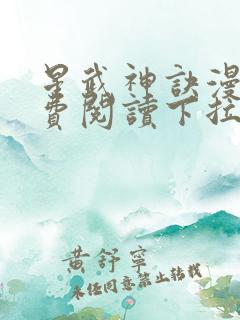 星武神訣漫
費閱讀下拉
黃舒寧
未經同意禁止轉載